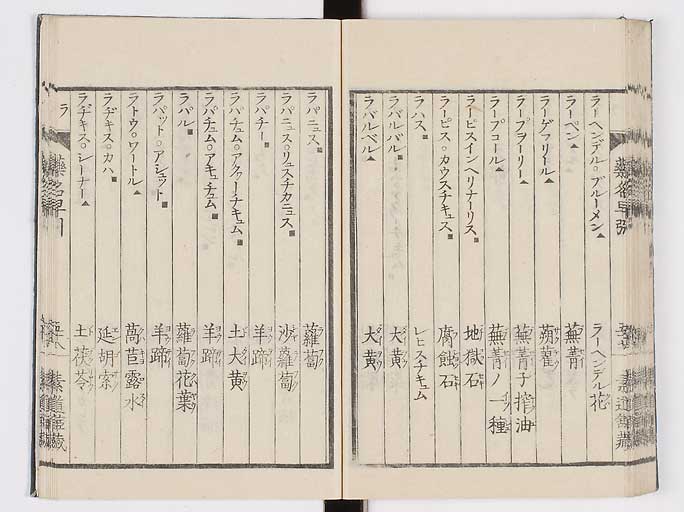 藥名早引
ラーヘンデル。ブルーメン▲ ラーヘンデル花
ラーペン▲ 蕪菁
ラーゲフリール▲ 蒴藋
ラープヲーリー▲ 蕪菁子搾油
ラープコール▲ 蕪菁ノ一種
ラーピスインヘリナーリス■ 地獄石
ラーピス。カウスチキュス■ 腐蝕石
ラハス■ レヒスチキュム
ラバルバル■ 大黄
ラバルベル▲ 大黄
ラパニュス■ 蘿蔔
ラパニュス。リュスチカニュス■ 沙蘿蔔
ラパチー■ 羊蹄
ラパチュム。アクァーチキュム■ 土大黄
ラパチュム。アキュチュム■ 羊蹄
ラパル■ 蘿蔔花葉
ラパット。アシュット■ 羊蹄
ラトウ。ワートル▲ 萵苣露水
ラヂキス。カハ■ 延胡索
ラヂキス。シーナー▲ 土茯苓
ラ
藥名早引